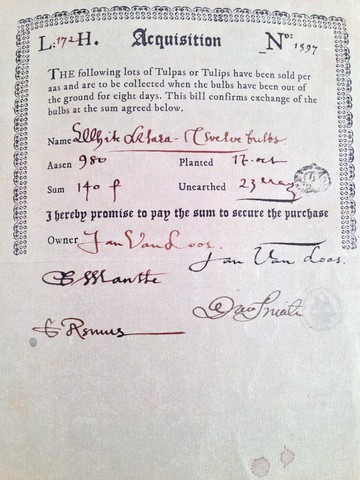 L: 172 H. Acquisition Nº: 1597
THE following lots of Tulpas or Tulips have been sold per
aas and are to be collected when the bulbs have been out of
the ground for eight days. This bill confirms exchange of the
bulbs at the sum agreed below.
Name Twelve bulbs
Aasen 980 Planted 17 oct
Sum 140 f Unearthed 23 May
I hereby promise to pay the sum to secure the purchase
Owner Jan Van Loos.
Jan Van Loos.